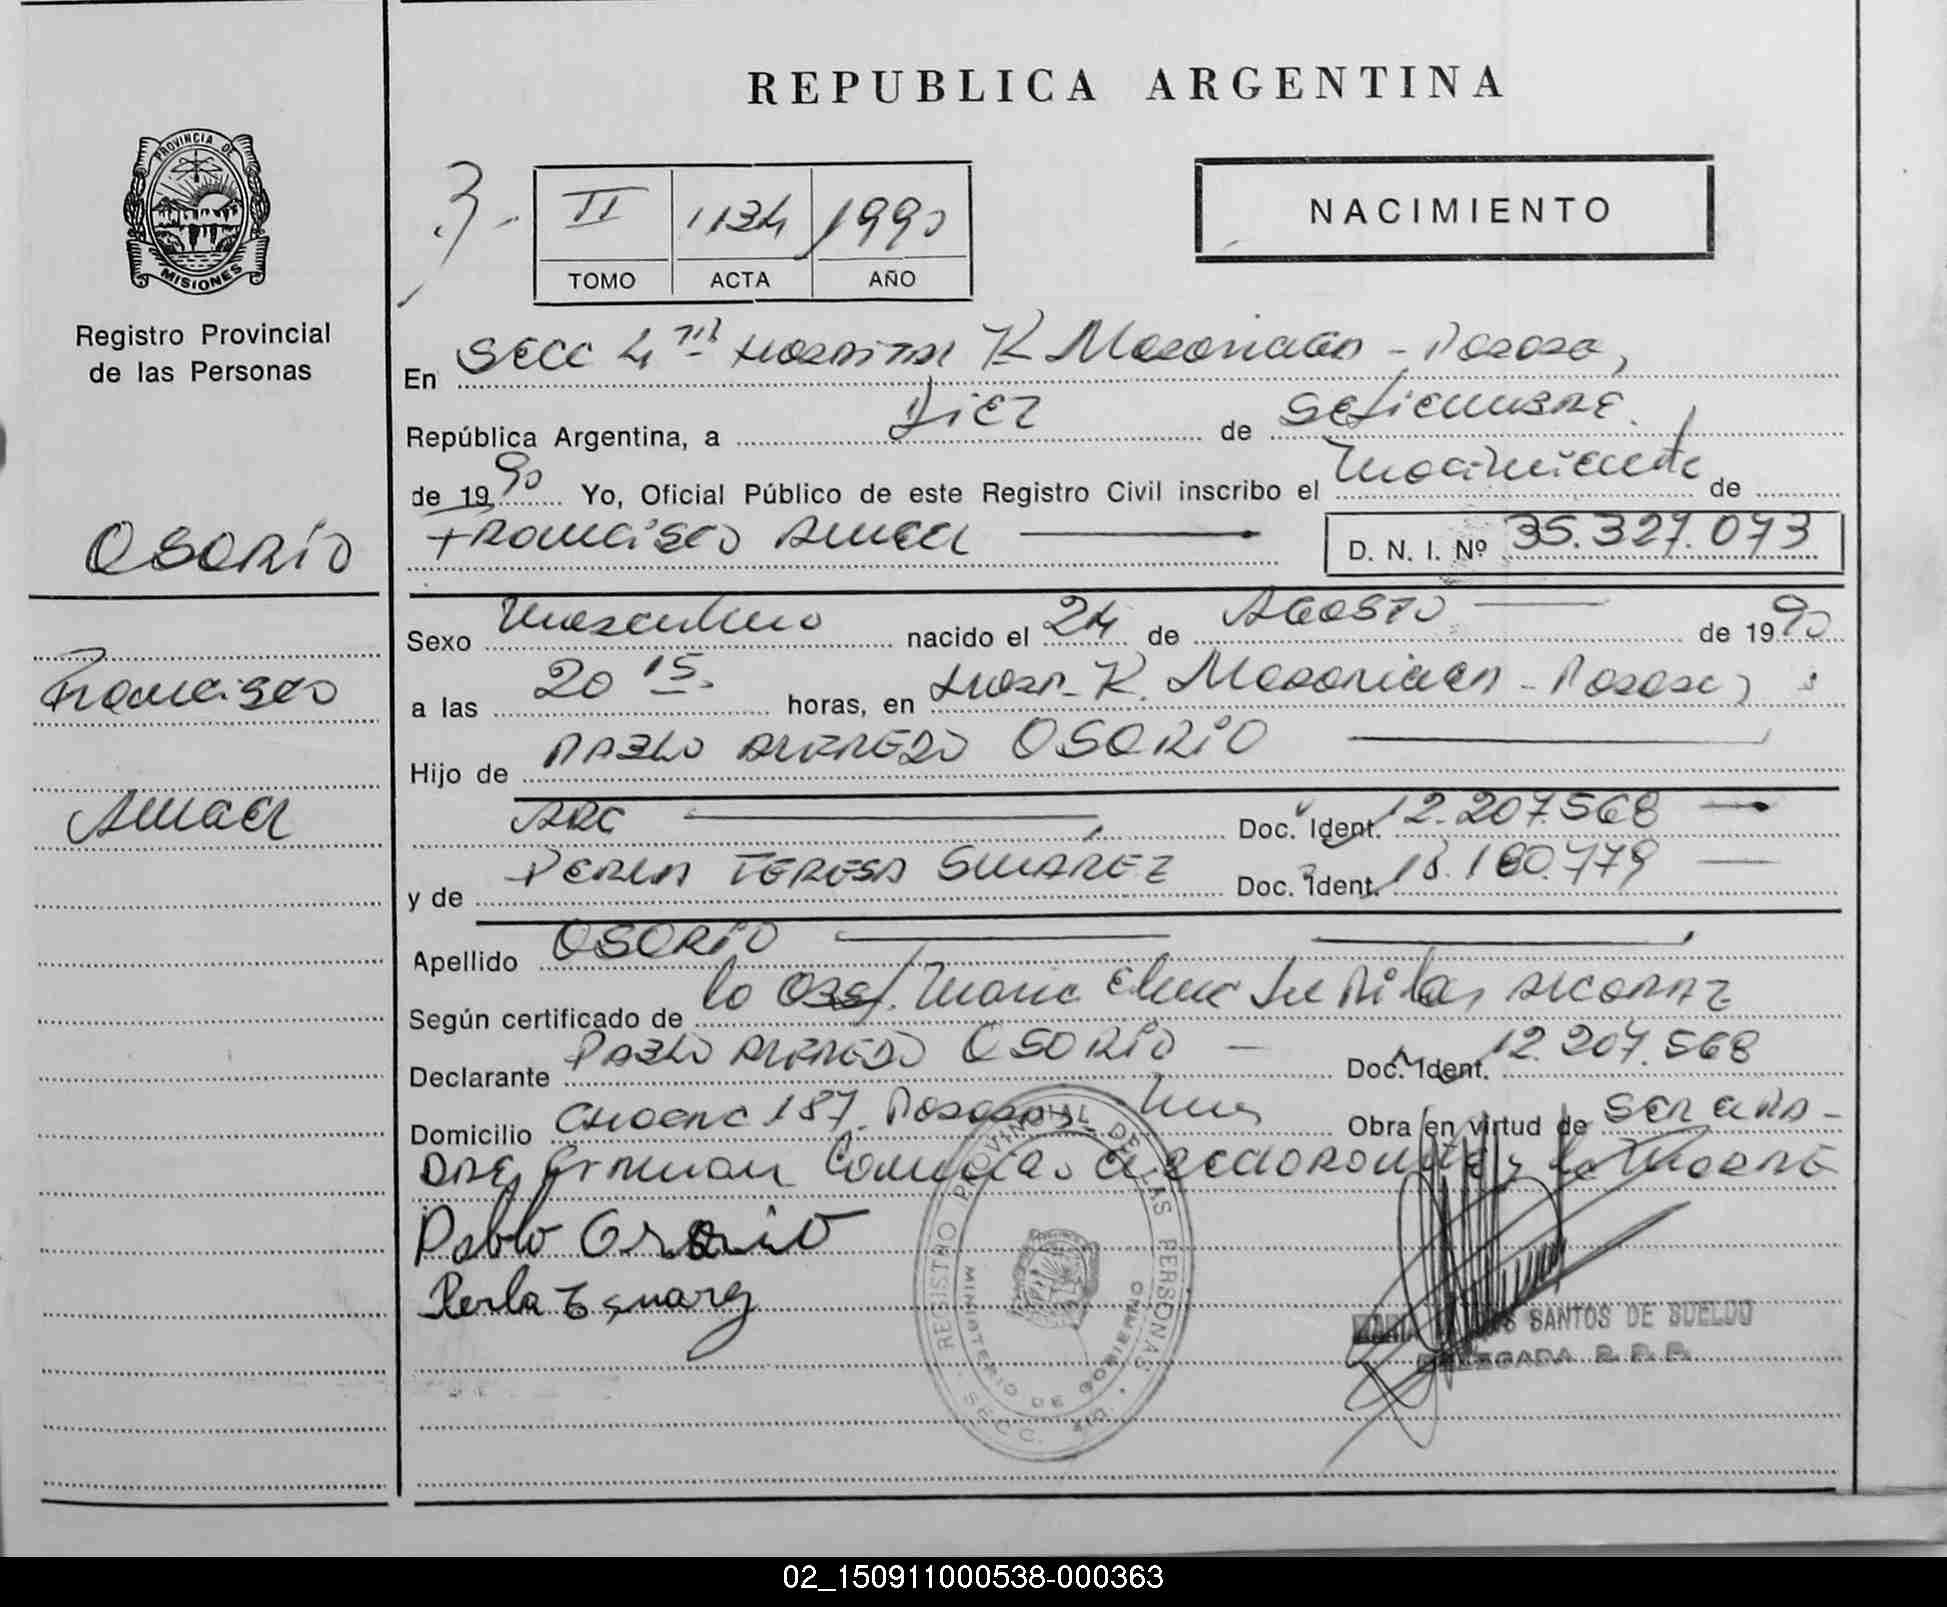 REPUBLICA ARGENTINA
PROVINCIA DE
MISIONES
Registro Provincial
de las Personas
3.-
II 1134 1990
TOMO ACTA AÑO
NACIMIENTO
En SECC 4ta Hospital R Madariaga - Posadas,
República Argentina, a Diez de Setiembre
de 1990 Yo, Oficial Público de este Registro Civil inscribo el Nacimiento de
Francisco
D. N. I. Nº 35.327.073
OSORIO
Francisco
Sexo Masculino nacido el 24 de AGOSTO de 1990
a las 20 15 horas, en Hosp. R. Madariaga - Posadas
Hijo de PABLO ALFREDO OSORIO
ARG Doc. Ident. 12.207.568
y de PERLA TERESA SUAREZ Doc. Ident. 18.180.779
Apellido OSORIO
Según certificado de la Obst. Maria Elena del Pilar ALCARAZ
Declarante PABLO ALFREDO OSORIO Doc. Ident. 12.207.568
Domicilio 187. Posadas, Mnes Obra en virtud de SER el PA-
DRE, firman Conmigo el declarante y la MADRE
Pablo Osorio
Perla T Suarez
REGISTRO PROVINCIAL DE LAS PERSONAS
MINISTERIO DE GOBIERNO
SECC. 4ta
SANTOS DE SUELDO
DELEGADA R. P. P.
02_150911000538-000363